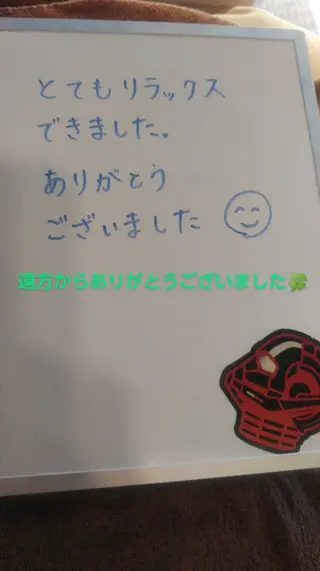 とてもリラックス
できました。
ありがとう
ございました
遠方からありがとうございました🍀